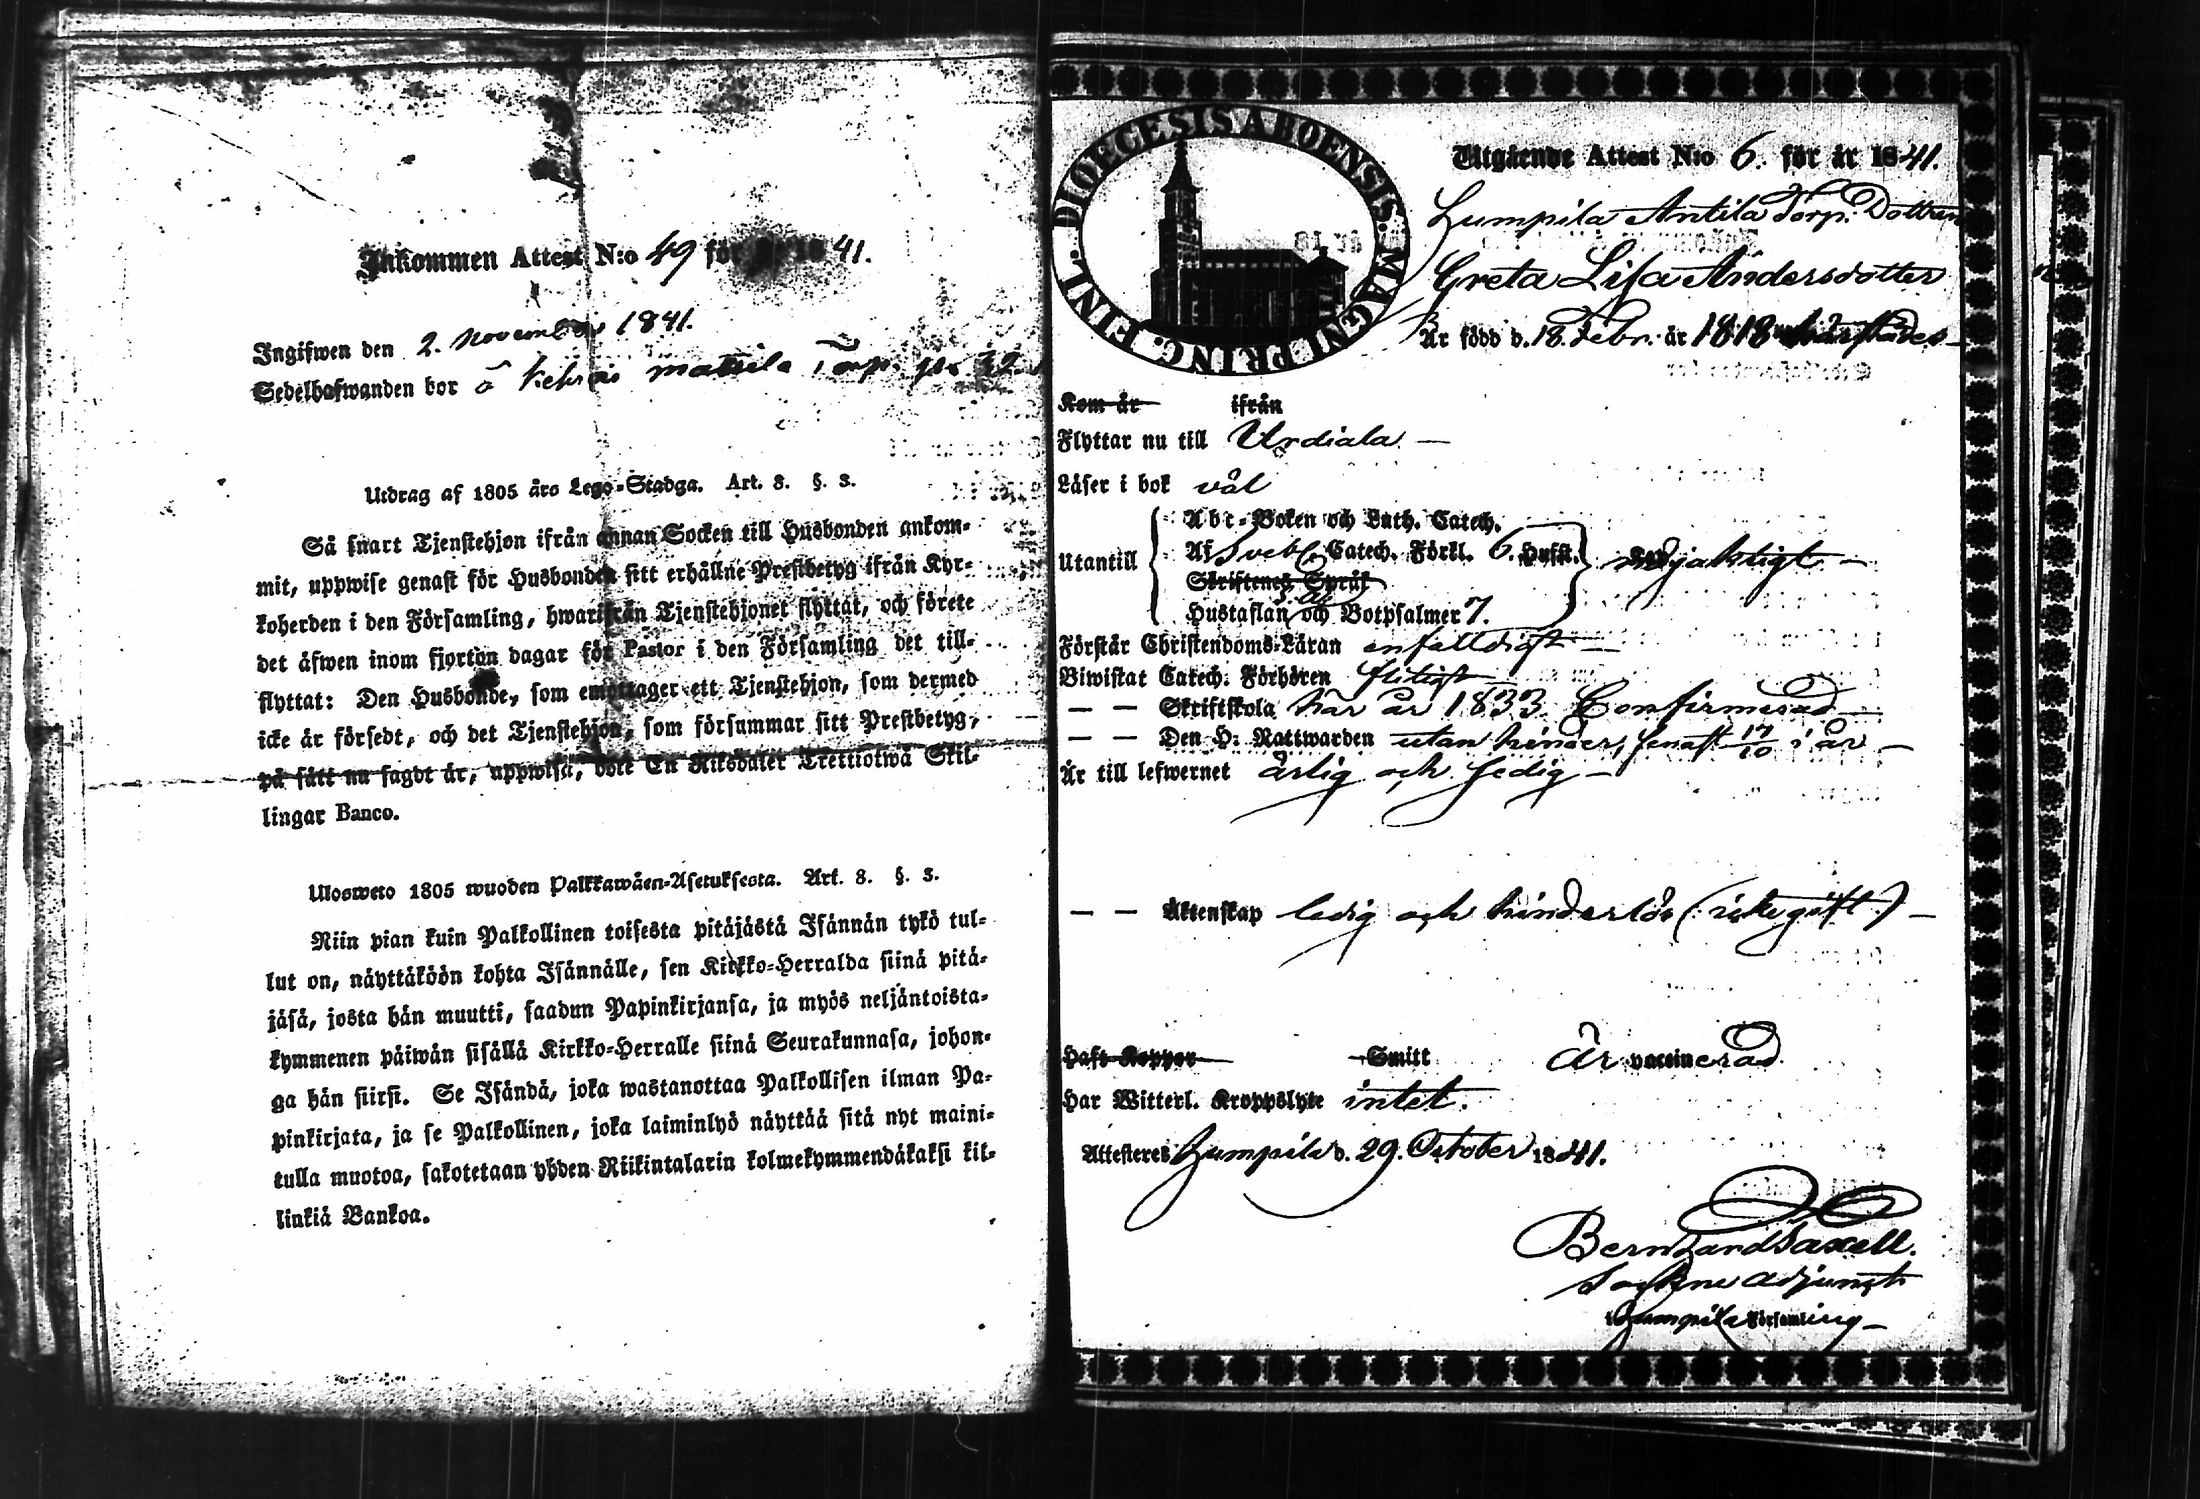 Inkommen Attest N:o 49 för 41.
Ingifwen den 2. november 1841.
Sedelhafwanden bor å mattila Torp.
Utdrag af 1805 års Lego-Stadga. Art. 8. §. 3.
Så snart Tjenstehjon ifrån annan Socken till Husbonden ankom-
mit, uppwise genast för Husbonden sitt erhållne Prestbetyg ifrån Kyr-
koherden i den Församling, hwarifrån Tjenstehjonet flyttat, och förete
det äfwen inom fjorton dagar för Pastor i den Församling det till-
flyttat: Den Husbonde, som emottager ett Tjenstehjon, som dermed
icke är försedt, och det Tjenstehjon, som försummar sitt Prestbetyg,
på sätt nu sagdt är, uppwisa, böte En Riksdaler Trettiotwå Skil-
lingar Banco.
Ulosweto 1805 wuoden Palkkawäen-Asetuksesta. Art. 8. §. 3.
Niin pian kuin Palkollinen toisesta pitäjästä Isännän tykö tul-
lut on, näyttäköön kohta Isännälle, sen Kirkko-Herralda siinä pitä-
jäsä, josta hän muutti, saadun Papinkirjansa, ja myös neljäntoista-
kymmenen päiwän sisällä Kirkko-Herralle siinä Seurakunnasa, johon-
ga hän siirsi. Se Isändä, joka wastanottaa Palkollisen ilman Pa-
pinkirjata, ja se Palkollinen, joka laiminlyö näyttää sitä nyt maini-
tulla muotoa, sakotetaan yhden Riikintalarin kolmekymmendäkaksi kil-
linkiä Bankoa.
DIOECESIS ABOENSIS. MAGNI PRINC. FINL.
Utgående Attest N:o 6. för år 1841.
Humpila Antila Torp. Dottren
Greta Lisa Andersdotter
Är född d. 18. Febr. år 1818 härstädes
Kom år ifrån
Flyttar nu till Urdiala
Läser i bok väl
Utantill
Abc-Boken och Luth. Catech.
Af Sveb. Catech. Förkl. 6. Hufst.
Skriftenes Språk
Hustaflan och Botpsalmer 7.
nöjaktigt
Förstår Christendoms-Läran enfaldigt
Biwistat Catech. Förhören flitigt
— — Skriftskola här år 1833. Confirmerad
— — Den H: Nattwarden utan hinder, senast 17/10 i år
Är till lefwernet ärlig och sedig
— — Äktenskap ledig och hinderlös (icke gift)
Haft Koppor Smitt Är vaccinerad
Har Witterl. Kroppslyte intet.
Attesteres Humpila d. 29. October 1841.
Bernhard Saxell.
Sockne adjunct
i Humpila Församling